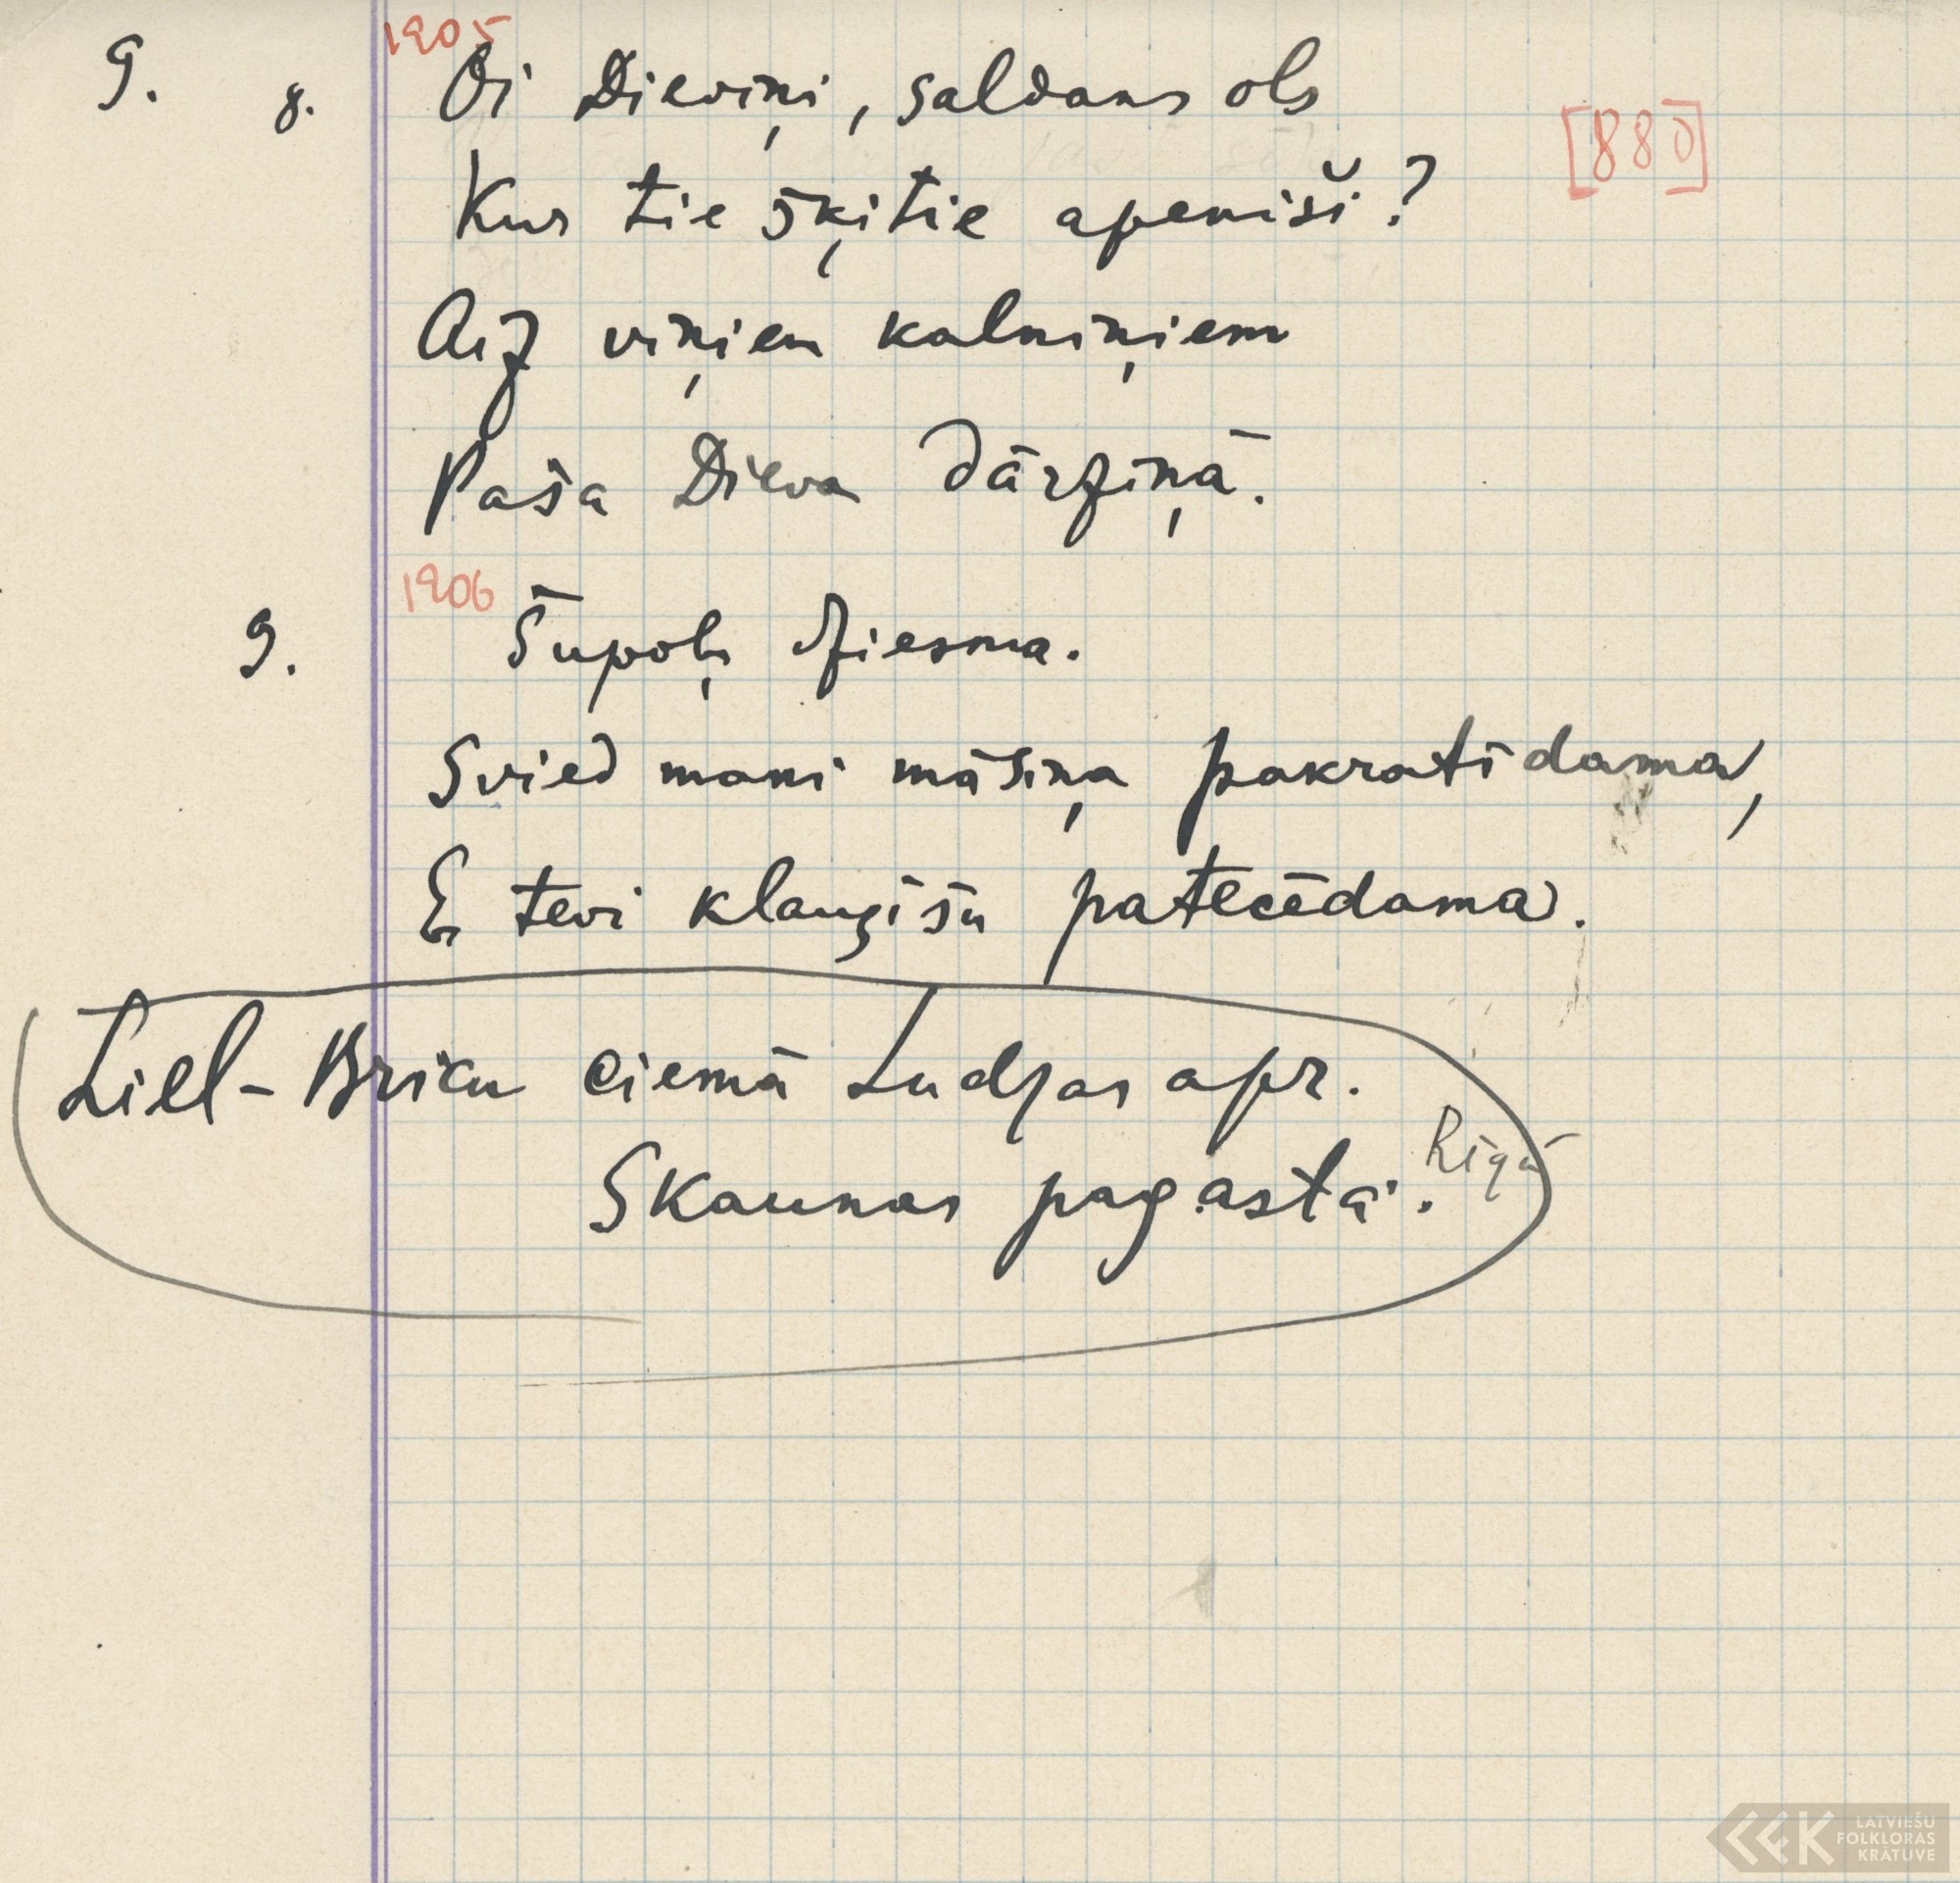 1905
9. 8. Oi Dieviņi, saldans ols
[880]
Kur tie šķitie apeniši?
Aiz viņiem kalniņiem
Paša Dieva dārziņā.
1906
9. Šūpoļ dziesma.
Svied mani māsiņa pakratīdama,
Es tevi klaugīšu patecēdama.
Liel-Bricu ciemā Ludzas apr.
Skaunas pagastā. Rīgā
LATVIEŠU
FOLKLORAS
KRĀTUVE